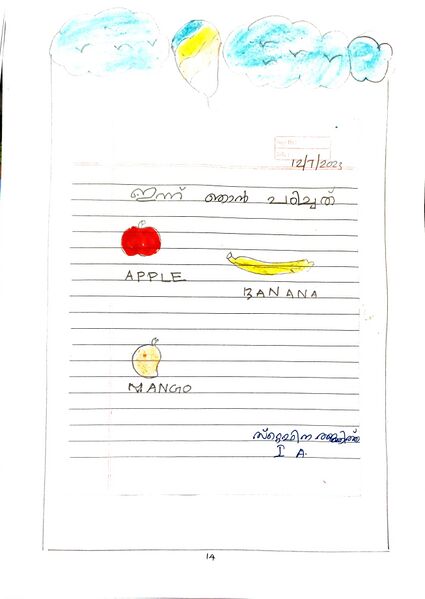 12/7/2023
ഇന്ന് ഞാൻ പഠിച്ചത്
APPLE
BANANA
MANGO
I A.
14